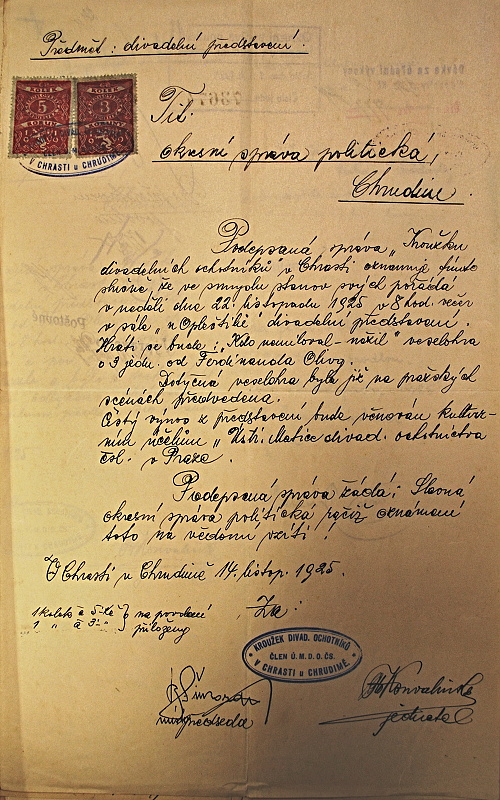 Předmět : divadelní představení.
KOLEK
5
KORUN
KOLEK
3
V CHRASTI u CHRUDIMĚ
Tit.
okresní správa politická,
Chrudim.
Podepsaná správa „Kroužku
divadelních ochotníků" v Chrasti oznamuje tímto
slušně, že ve smyslu stanov svých pořádá
v neděli dne 22. listopadu 1925 v 8 hod. večer
v sále „u Opletilů" divadelní představení.
Hráti se bude : „Kdo nemiloval - nežil" veselohra
o 3 jedn. od Ferdinanda Olivy.
Dotyčná veselohra byla již na pražských
scénách předvedena.
Čistý výnos z představení bude věnován kultur-
ním účelům „Ústř. Matice divad. ochotnictva
čsl. v Praze.
Podepsaná správa žádá : Slavná
okresní správa politická račiž oznámení
toto na vědomí vzíti !
V Chrasti u Chrudimě 14. listop. 1925.
1 kolek à 5 Kč } na povolení
1 „ à 3 „ } přiloženy
Za :
KROUŽEK DIVAD. OCHOTNÍKŮ
ČLEN Ú.M.D.O.ČS.
V CHRASTI u CHRUDIMĚ.
předseda
Konvalinka
jednatel